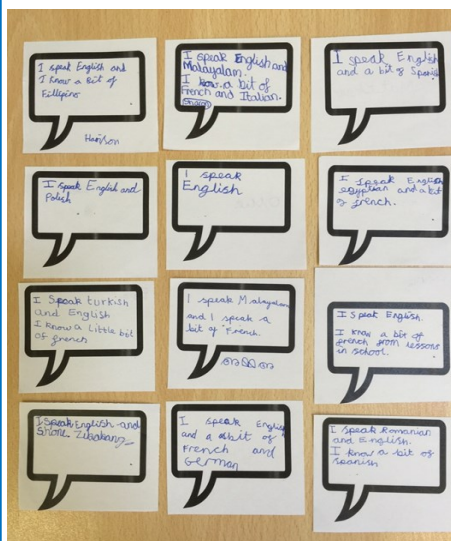 I speak English and
I know a bit of
Fillipino
Harrison
I speak English and
Malayalam.
I know a bit of
French and Italian.
I speak English
and a bit of Spanish
I speak English and
Polish
I speak
English
I speak English
egyptian and a bit
of french.
I Speak turkish
and English
I know a little bit
of french
I speak Malayalam
and I speak a
bit of French.
I Speak English.
I know a bit of
french from lessons
in school.
I Speak English and
Shone
I speak English
and a bit of
French and
German
I speak Romanian
and English.
I know a bit of
spanish